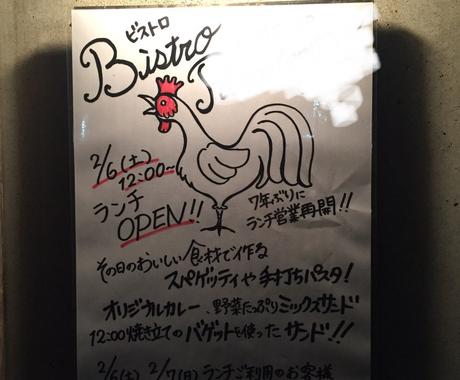 ビストロ
Bistro
2/6(土)
12:00~
ランチ
OPEN!!
7年ぶりに
ランチ営業再開!!
その日のおいしい食材で作る
スペゲッティや手打ちパスタ!
オリジナルカレー、野菜たっぷりミックスサンド
12:00焼き立てのバゲットを使ったサンド!!
2/6(土) 2/7(日)ランチご利用のお客様